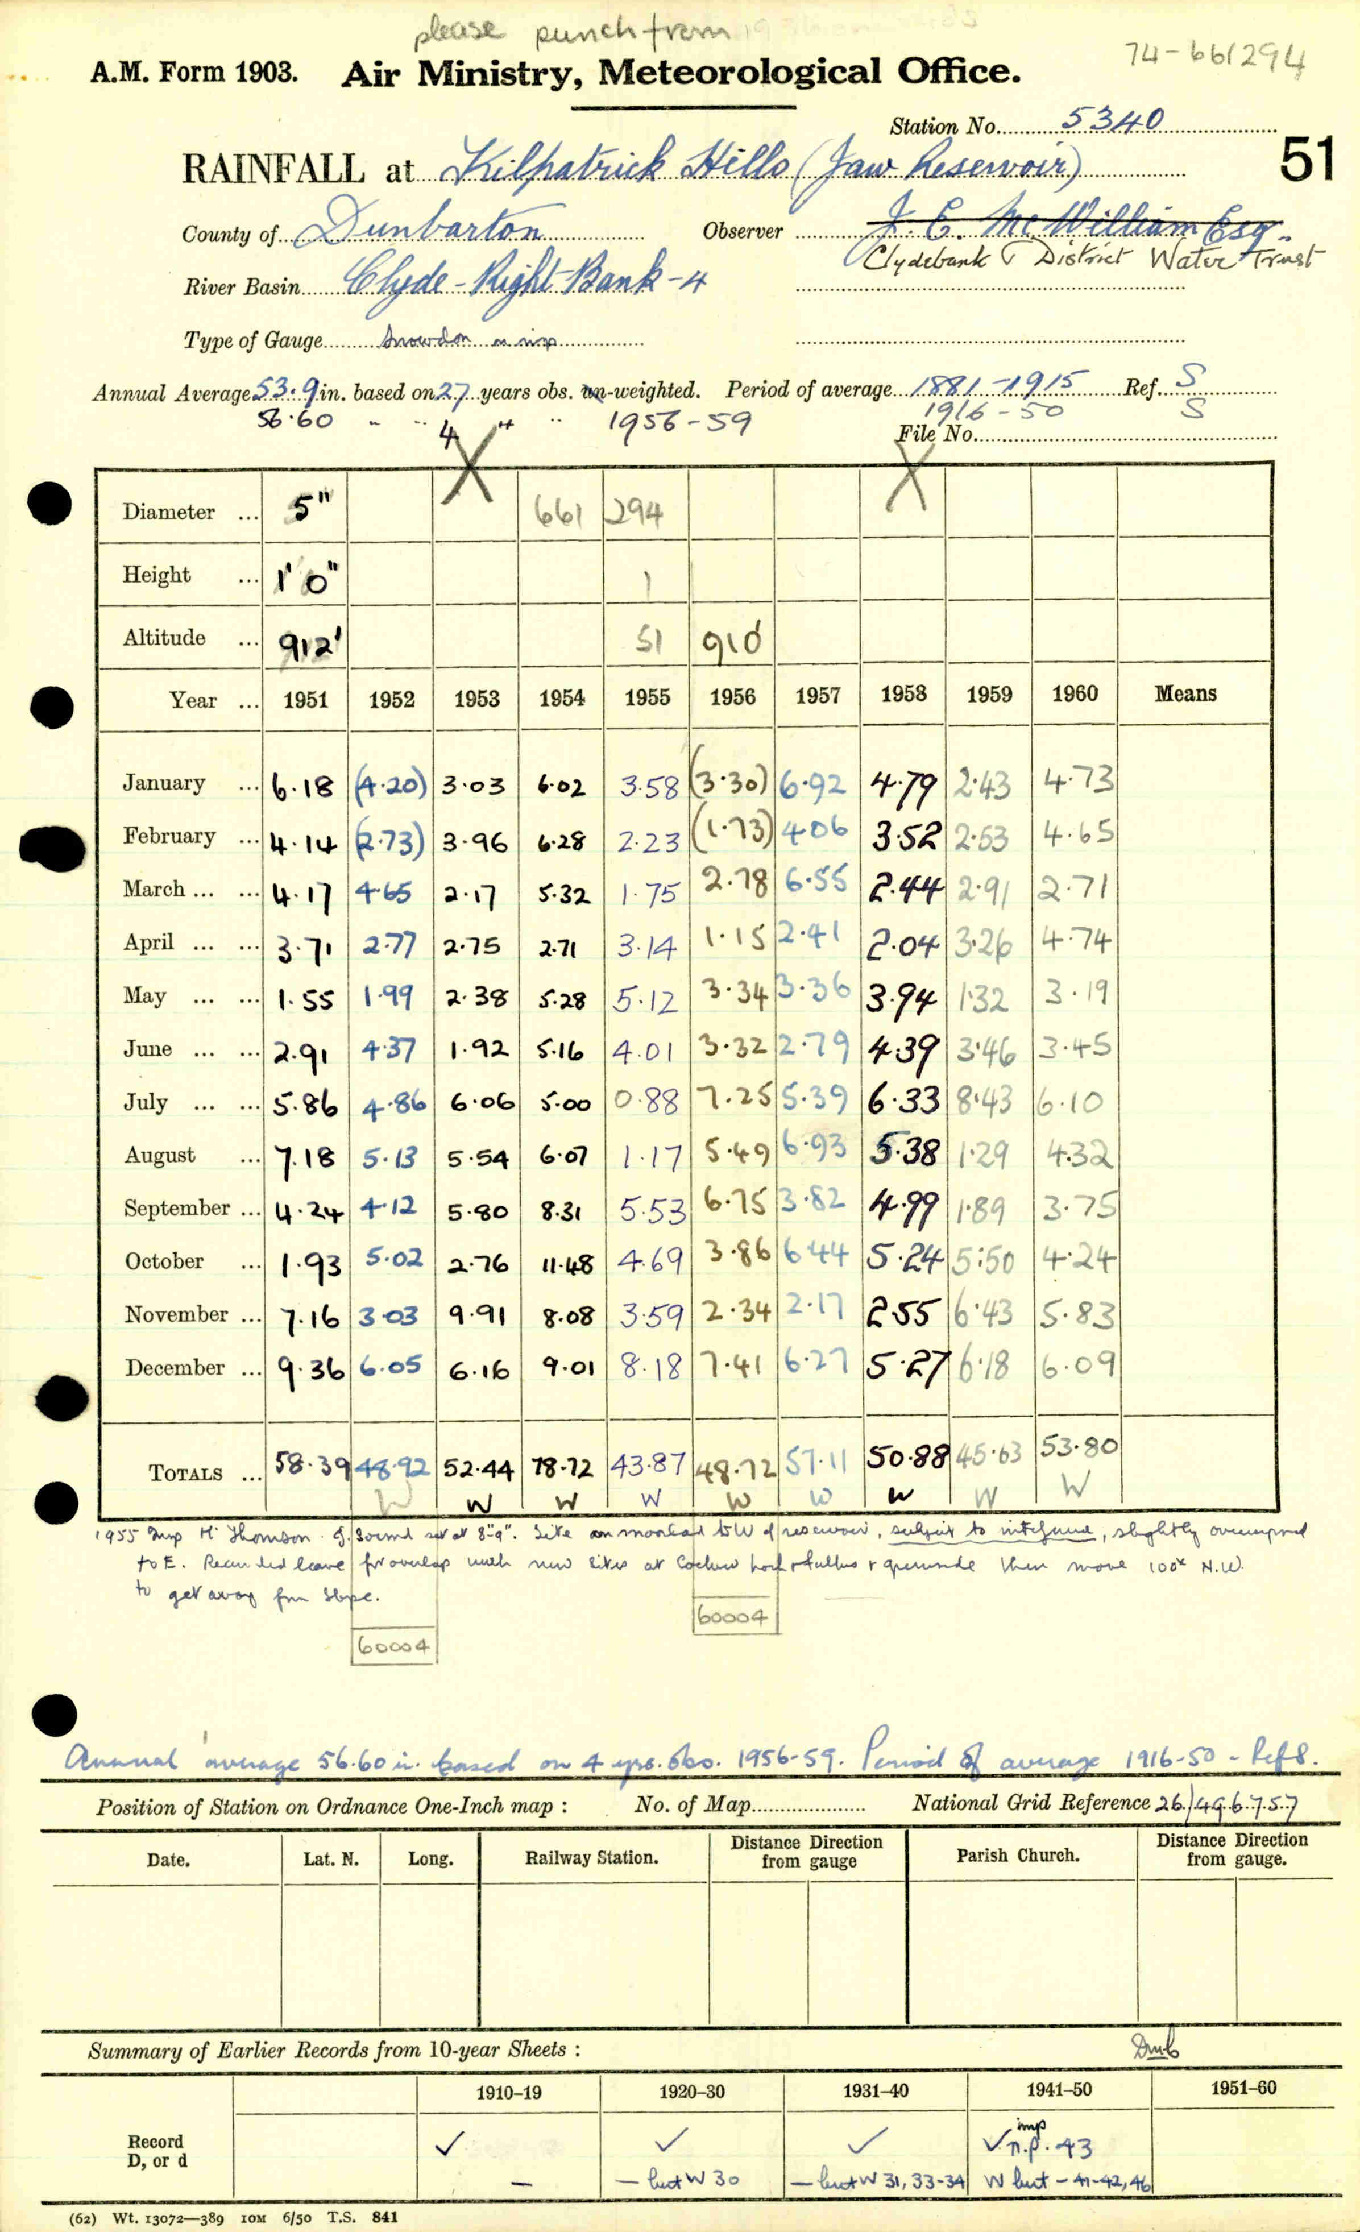 please punch from
74-661294
A.M. Form 1903. Air Ministry, Meteorological Office.
Station No. 5340
51
RAINFALL at Kilpatrick Hills (Jaw Reservoir)
County of Dunbarton Observer J. E. McWilliam Esq.
Clydebank & District Water Trust
River Basin Clyde - Right Bank - 4
Type of Gauge Snowdon m insp
Annual Average 53.9 in. based on 27 years obs. un-weighted. Period of average 1881-1915 Ref. S
56.60 " " 4 " " 1956-59 1916-50 S
File No.
Diameter ... 5" 661 294
Height ... 1' 0" 1
Altitude ... 912' 51 910'
Year ... 1951 1952 1953 1954 1955 1956 1957 1958 1959 1960 Means
January ... 6.18 (4.20) 3.03 6.02 3.58 (3.30) 6.92 4.79 2.43 4.73
February ... 4.14 (2.73) 3.96 6.28 2.23 (1.73) 4.06 3.52 2.53 4.65
March ... ... 4.17 4.65 2.17 5.32 1.75 2.78 6.55 2.44 2.91 2.71
April ... ... 3.71 2.77 2.75 2.71 3.14 1.15 2.41 2.04 3.26 4.74
May ... ... 1.55 1.99 2.38 5.28 5.12 3.34 3.36 3.94 1.32 3.19
June ... ... 2.91 4.37 1.92 5.16 4.01 3.32 2.79 4.39 3.46 3.45
July ... ... 5.86 4.86 6.06 5.00 0.88 7.25 5.39 6.33 8.43 6.10
August ... 7.18 5.13 5.54 6.07 1.17 5.49 6.93 5.38 1.29 4.32
September ... 4.24 4.12 5.80 8.31 5.53 6.75 3.82 4.99 1.89 3.75
October ... 1.93 5.02 2.76 11.48 4.69 3.86 6.44 5.24 5.50 4.24
November ... 7.16 3.03 9.91 8.08 3.59 2.34 2.17 2.55 6.43 5.83
December ... 9.36 6.05 6.16 9.01 8.18 7.41 6.27 5.27 6.18 6.09
TOTALS ... 58.39 48.92 52.44 78.72 43.87 48.72 57.11 50.88 45.63 53.80
W W W W W W W W W
1955 Insp H. Thomson. G. Sound set at 8"9". Site on moorland to W of reservoir, subject to interfence, slightly overexposed
to E. Recorded leave for overlap with new sites at Cochno Loch & then move 100x N.W.
to get away from slope.
60004
60004
Annual average 56.60 in. based on 4 yrs. obs. 1956-59. Period of average 1916-50 - Ref S.
Position of Station on Ordnance One-Inch map : No. of Map National Grid Reference 26/496757
Date. Lat. N. Long. Railway Station. Distance Direction from gauge Parish Church. Distance Direction from gauge.
Summary of Earlier Records from 10-year Sheets : Dmb
1910-19 1920-30 1931-40 1941-50 1951-60
Record ✓ ✓ ✓ ✓ insp n.p. 43
D, or d — — but W 30 — but W 31, 33-34 W but - 41-42, 46
(62) Wt. 13072—389 10M 6/50 T.S. 841